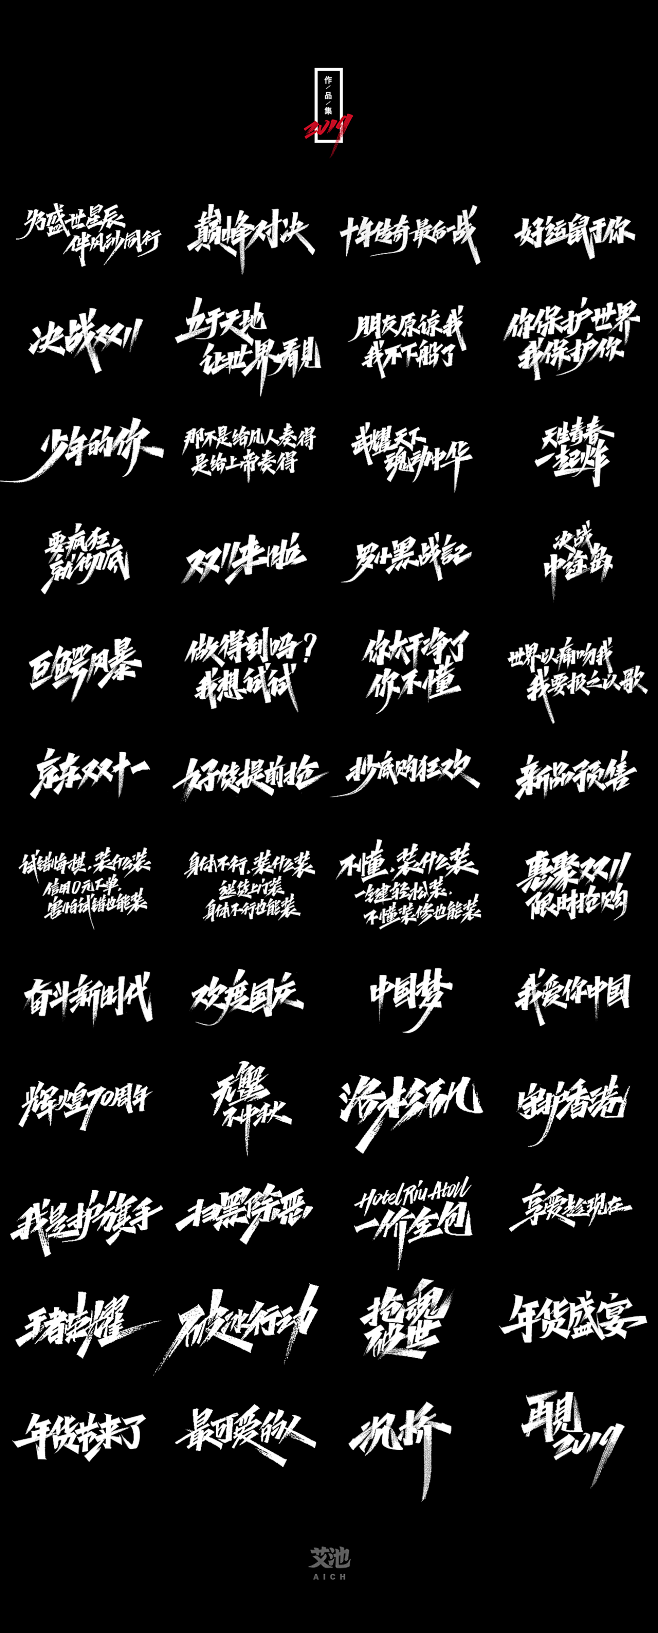 作/品/集
2019
为盛世星辰
伴风沙同行
巅峰对决
十年传奇最后一战
好运鼠于你
决战双11
立于天地
让世界看見
朋友原谅我
我不下船了
你保护世界
我保护你
少年的你
那不是给凡人奏得
是给上帝奏得
武耀天下
魂动中华
天生青春
一起炸
要疯狂
就彻底
双11来啦
罗小黑战記
决战
中途岛
巨鳄风暴
做得到吗?
我想试试
你太干净了
你不懂
世界以痛吻我
我要报之以歌
京东双十一
好货提前抢
抄底购狂欢
新品预售
试错悔棋,装什么装
信用0元下单,
害怕试错也能装
身体不行,装什么装
送货上门装,
身体不行也能装
不懂,装什么装
一键轻松装,
不懂装修也能装
惠聚双11
限时抢购
奋斗新时代
欢度国庆
中国梦
我爱你中国
辉煌70周年
无蟹
不中秋
洛杉矶
守护香港
我是护旗手
扫黑除恶
Hotel Riu Atoll
一价全包
享受趁现在
王者荣耀
破冰行动
抢魂
破世
年货盛宴
年货节来了
最可爱的人
汎桥
再見
2019
艾池
AICH